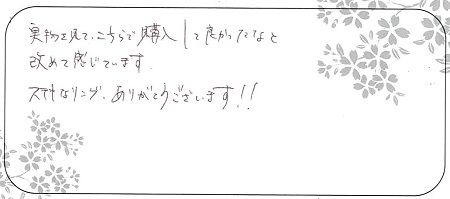 実物を見て、こちらで購入して良かったなと
改めて感じています。
ステキなリング、ありがとうございます!!